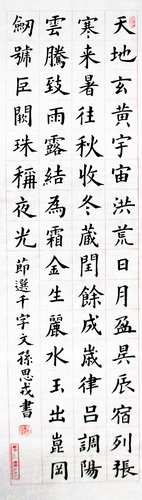 天地玄黃宇宙洪荒日月盈昃辰宿列張
寒来暑往秋收冬蔵閏餘成嵗律吕調陽
雲騰致雨露結為霜金生麗水玉出崑岡
劒號巨闕珠稱夜光
莭選千字文孫思戎書